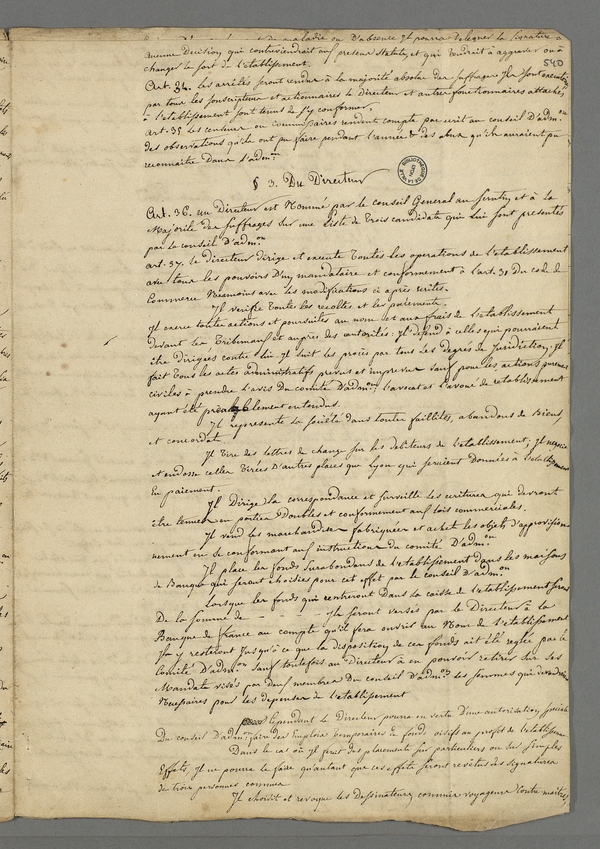 de maladie ou d'absence Il pourra déléguer la signature a
aucune Decision qui contreviendrait aux presens statuts, et qui tendrait à aggraver ou à
changer le sort de l'etablissement.
540
Art. 34. les arrêtés seront rendus à la majorité absolue des suffrages Ils sont executés
par tous les souscripteurs et actionnaires le Directeur et autres fonctionnaires attachés
à l'etablissement sont tenus de s'y conformer.
art. 35 les censeurs ou commissaires rendent compte par ecrit au conseil D'adm.on
des observations qu'ils ont pu faire pendant l'année & des abus qu'ils auraient pu
reconnaitre dans l'adm.on
§ 3. Du Directeur
BIBLIOTHEQUE DE LA VILLE LYON
Art. 36. un Directeur est Nommé par le conseil General au scrutin et à la
Majorité des suffrages sur une liste de trois candidats qui lui sont presentés
par le conseil D'adm.on
art. 37. le directeur dirige et execute toutes les operations de l'etablissement
avec tous les pouvoirs D'un mandataire et conformement à l'art. 31 du code de
Commerce Neamoins avec les modifications ci après ecrites.
Il verifie toutes les recoltes et les paiements.
Il exerce toutes actions et poursuites au nom et aux frais de l'etablissement
devant les Tribunaux et aupres des autorités; Il defend à celles qui pourraient
être dirigées contre lui Il suit les procès par tous les degrés de Juridiction; Il
fait tous les actes administratifs prevus et imprevus sauf pour les actions purement
civiles à prendre l'avis du comité D'adm.on, l'avocat et l'avoué de l'etablissement
ayant été prealablement entendus.
Il represente la societé dans toutes faillites, abandons de Biens,
et concordat
Il tire des lettres de change sur les debiteurs de l'etablissement; Il negocie
et endosse celles tirées D'autres places que Lyon qui seraient données à l'etablissement
En paiement.
Il Dirige la correspondance et surveille les ecritures qui devront
être tenues en parties Doubles et conformement aux lois commerciales.
Il vend les marchandises fabriquées et achete les objets d'approvision-
nement en se conformant aux instructions du comité D'adm.on
Il place les fonds surabondans de l'etablissement dans les maisons
de Banque qui seront choisies pour cet effet par le conseil D'adm.on
Lorsque les fonds qui rentreront Dans la caisse de l'etablissement seront
De la somme de - - - Ils seront versés par le Directeur à la
Banque de france au compte qu'il fera ouvrir au Nom de l'etablissement
Ils y resteront Jusqu'à ce que la disposition de ces fonds ait été reglée par le
Comité D'adm.on sauf toutefois au Directeur à en pouvoir retirer sur ses
Mandats visés par deux membres Du conseil D'adm.on les sommes qui deviendront
Necessaires pour les depenses de l'etablissement
Cependant le Directeur pourra en vertu D'une autorisation speciale
Du conseil D'adm.on faire des Emplois temporaires de fonds oisifs au profit de l'etablissement
Dans le cas où Il ferait des placements sur particuliers ou sur simples
Effets, Il ne pourra le faire qu'autant que ces effets seront revetus des signatures
de trois personnes connues
Il choisit et revoque les Dessinateurs, commis voyageurs Contre maitres,